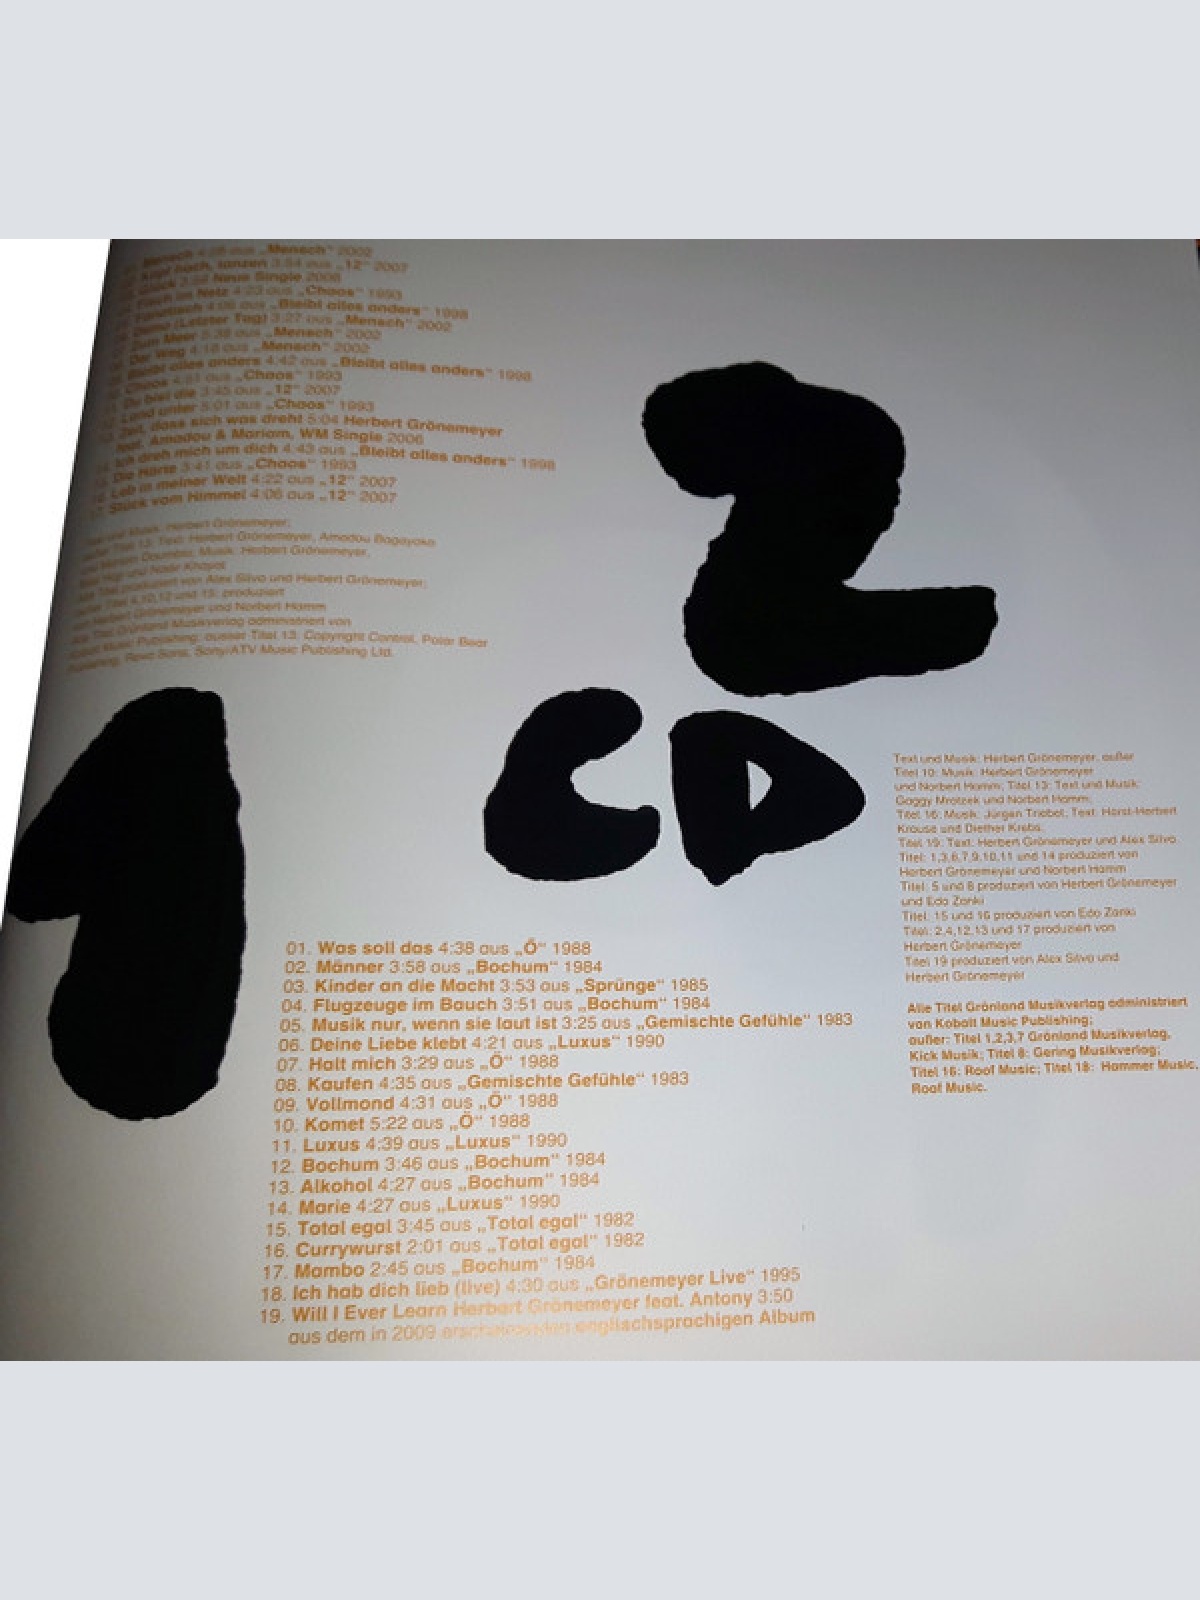 Mensch 4:26 aus „Mensch" 2002
Kopf hoch, tanzen 3:54 aus „12" 2007
Glück 3:52 Neue Single 2008
Fisch im Netz 4:23 aus „Chaos" 1993
Fanatisch 4:06 aus „Bleibt alles anders" 1998
Demo (Letzter Tag) 3:27 aus „Mensch" 2002
Zum Meer 5:38 aus „Mensch" 2002
Der Weg 4:18 aus „Mensch" 2002
Bleibt alles anders 4:42 aus „Bleibt alles anders" 1998
Chaos aus „Chaos" 1993
Du bist die 3:45 aus „12" 2007
Land unter 5:01 aus „Chaos" 1993
Zeit, dass sich was dreht 5:04 Herbert Grönemeyer
feat. Amadou & Mariam, WM Single 2006
14. Ich dreh mich um dich 4:43 aus „Bleibt alles anders" 1998
15. Die Härte 3:41 aus „Chaos" 1993
16. Leb in meiner Welt 4:22 aus „12" 2007
17. Stück vom Himmel 4:06 aus „12" 2007
und Musik: Herbert Grönemeyer;
außer Titel 13: Text: Herbert Grönemeyer, Amadou Bagayoko
und Mariam Doumbia, Musik: Herbert Grönemeyer,
und Nadir Khayat
Titel produziert von Alex Silva und Herbert Grönemeyer;
außer Titel 4,10,12 und 15: produziert
von Herbert Grönemeyer und Norbert Hamm
Alle Titel Grönland Musikverlag administriert von
Kobalt Music Publishing; ausser Titel 13: Copyright Control, Polar Bear
Publishing, Sons, Sony/ATV Music Publishing Ltd.
2
1
CD
Text und Musik: Herbert Grönemeyer, außer
Titel 10: Musik: Herbert Grönemeyer
und Norbert Hamm; Titel 13: Text und Musik:
Gaggy Mrotzek und Norbert Hamm;
Titel 16: Musik: Jürgen Triebel; Text: Horst-Herbert
Krause und Diether Krebs.
Titel 19: Text: Herbert Grönemeyer und Alex Silva
Titel: 1,3,6,7,9,10,11 und 14 produziert von
Herbert Grönemeyer und Norbert Hamm
Titel: 5 und 8 produziert von Herbert Grönemeyer
und Edo Zanki
Titel: 15 und 16 produziert von Edo Zanki
Titel: 2,4,12,13 und 17 produziert von
Herbert Grönemeyer
Titel 19 produziert von Alex Silva und
Herbert Grönemeyer
Alle Titel Grönland Musikverlag administriert
von Kobalt Music Publishing;
außer: Titel 1,2,3,7 Grönland Musikverlag,
Kick Musik; Titel 8: Gering Musikverlag;
Titel 16: Roof Music; Titel 18: Hammer Music,
Roof Music.
01. Was soll das 4:38 aus „Ö" 1988
02. Männer 3:58 aus „Bochum" 1984
03. Kinder an die Macht 3:53 aus „Sprünge" 1985
04. Flugzeuge im Bauch 3:51 aus „Bochum" 1984
05. Musik nur, wenn sie laut ist 3:25 aus „Gemischte Gefühle" 1983
06. Deine Liebe klebt 4:21 aus „Luxus" 1990
07. Halt mich 3:29 aus „Ö" 1988
08. Kaufen 4:35 aus „Gemischte Gefühle" 1983
09. Vollmond 4:31 aus „Ö" 1988
10. Komet 5:22 aus „Ö" 1988
11. Luxus 4:39 aus „Luxus" 1990
12. Bochum 3:46 aus „Bochum" 1984
13. Alkohol 4:27 aus „Bochum" 1984
14. Marie 4:27 aus „Luxus" 1990
15. Total egal 3:45 aus „Total egal" 1982
16. Currywurst 2:01 aus „Total egal" 1982
17. Mambo 2:45 aus „Bochum" 1984
18. Ich hab dich lieb (live) 4:30 aus „Grönemeyer Live" 1995
19. Will I Ever Learn Herbert Grönemeyer feat. Antony 3:50
aus dem in 2009 erscheinenden englischsprachigen Album